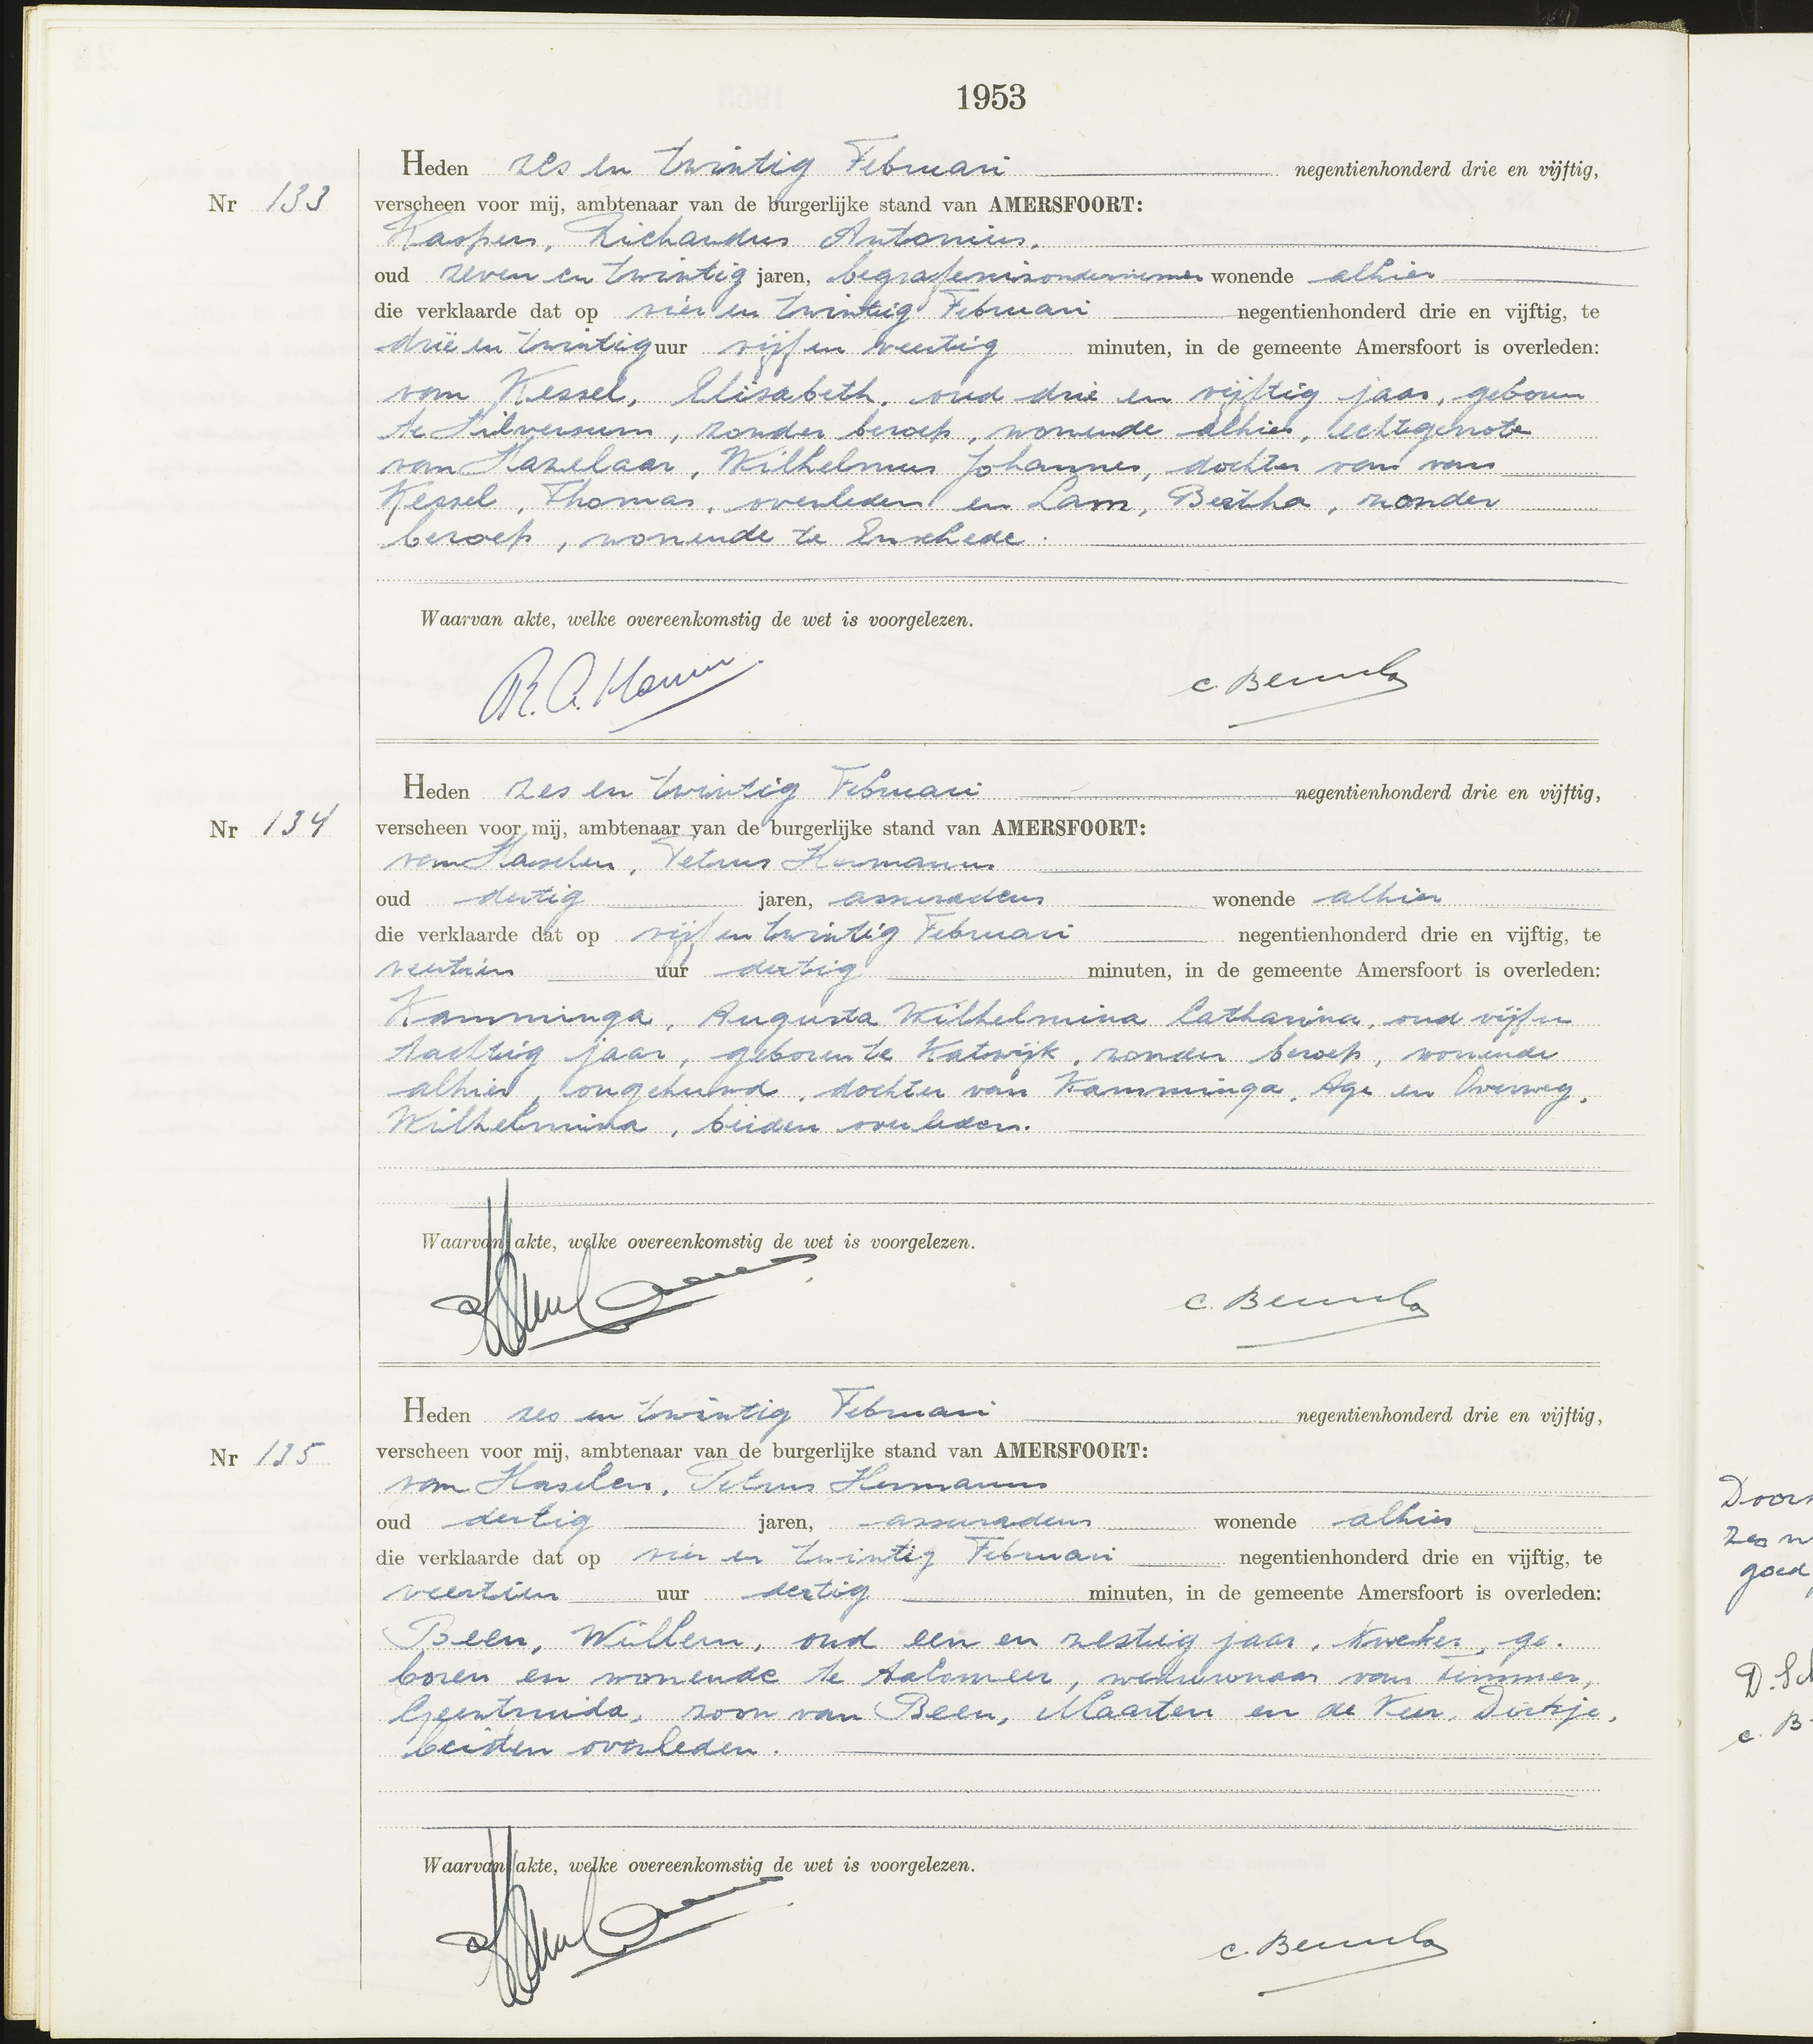 1953
Heden zes en twintig Februari negentienhonderd drie en vijftig,
Nr 133
verscheen voor mij, ambtenaar van de burgerlijke stand van AMERSFOORT:
Kaspers, Richardus Antonius,
oud zeven en twintig jaren, begrafenisondernemer wonende alhier
die verklaarde dat op vier en twintig Februari negentienhonderd drie en vijftig, te
drie en twintig uur vijf en veertig minuten, in de gemeente Amersfoort is overleden:
van Kessel, Elisabeth, oud drie en vijftig jaar, geboren
te Hilversum, zonder beroep, wonende alhier, echtgenote
van Hazelaar, Wilhelmus Johannes, dochter van van
Kessel, Thomas, overleden en Lam, Bertha, zonder
beroep, wonende te Enschede.
Waarvan akte, welke overeenkomstig de wet is voorgelezen.
R.A.
Heden zes en twintig Februari negentienhonderd drie en vijftig,
Nr 134
verscheen voor mij, ambtenaar van de burgerlijke stand van AMERSFOORT:
van Haselen, Petrus Hermanus
oud dertig jaren, assuradeur wonende alhier
die verklaarde dat op vijf en twintig Februari negentienhonderd drie en vijftig, te
veertien uur dertig minuten, in de gemeente Amersfoort is overleden:
Kamminga, Augusta Wilhelmina Catharina, oud vijf en
tachtig jaar, geboren te Katwijk, zonder beroep, wonende
alhier, ongehuwd, dochter van Kamminga, Age en Overweg,
Wilhelmina, beiden overleden.
Waarvan akte, welke overeenkomstig de wet is voorgelezen.
Heden zes en twintig Februari negentienhonderd drie en vijftig,
Nr 135
verscheen voor mij, ambtenaar van de burgerlijke stand van AMERSFOORT:
van Haselen, Petrus Hermanus
oud dertig jaren, assuradeur wonende alhier
die verklaarde dat op vier en twintig Februari negentienhonderd drie en vijftig, te
veertien uur dertig minuten, in de gemeente Amersfoort is overleden:
Been, Willem, oud een en zestig jaar, kweker, ge-
boren en wonende te Aalsmeer, weduwnaar van Timmer,
Geertruida, zoon van Been, Maarten en de Veer, Dirkje,
beiden overleden.
Waarvan akte, welke overeenkomstig de wet is voorgelezen.
goed